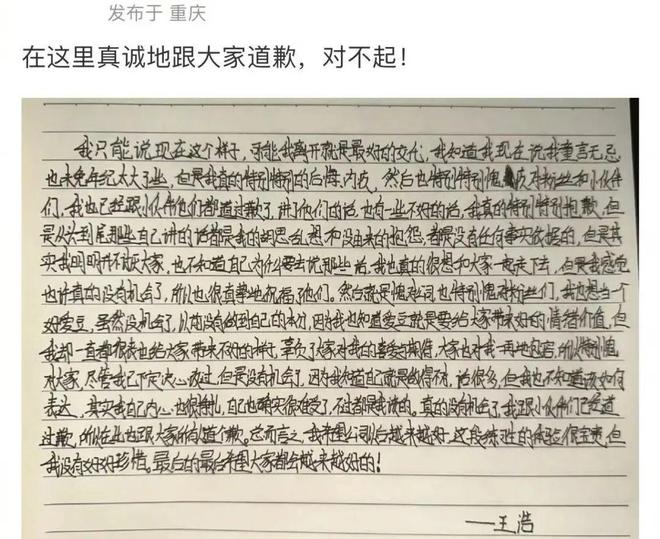 发布于 重庆
在这里真诚地跟大家道歉，对不起！
我只能说现在这个样子，可能我离开就是最好的交代，我知道我现在说我童言无忌
也未免年纪太大了些，但是我真的特别特别的后悔、内疚，然后也特别特别愧疚对粉丝和小伙伴
们，我也已经跟小伙伴他们都道过歉了，讲了他们的话，也有一些不好的话，我真的特别特别抱歉，但
是从头到尾那些自己讲的话都是我的胡思乱想和没由来的抱怨，都是没有任何事实依据的，但是其
实我明明并不讨厌大家，也不知道自己为什么要去说那些话，我也真的很想和大家一起走下去，但是我感觉
也许真的没有机会了，所以也很真挚地祝福了他们。然后就是愧对公司也特别愧对粉丝们，我也想当个
好爱豆，虽然没机会了，以前没有做到自己的本分，因为我也知道爱豆就是要给大家带来好的情绪价值，但
我却一直都很表也给大家带来不好的样子，辜负了大家对我的喜爱和期待，大家也对我一再地包容，所以特别愧
对大家，尽管我已下定决心改过，但是没有机会了，因为我知道自己就是做得不对，话很多，但我也不知道该如何
表达，其实我自己内心也很挣扎，自己也确实很难受了，不过都是我该的。真的没机会了，我跟小伙伴们已经道
过歉，所以在此也跟大家所有道个歉。总而言之，我希望公司以后越来越好，这段练习生的体验很宝贵，但
我没有好好珍惜。最后的最后希望大家都会越来越好的！
——王浩